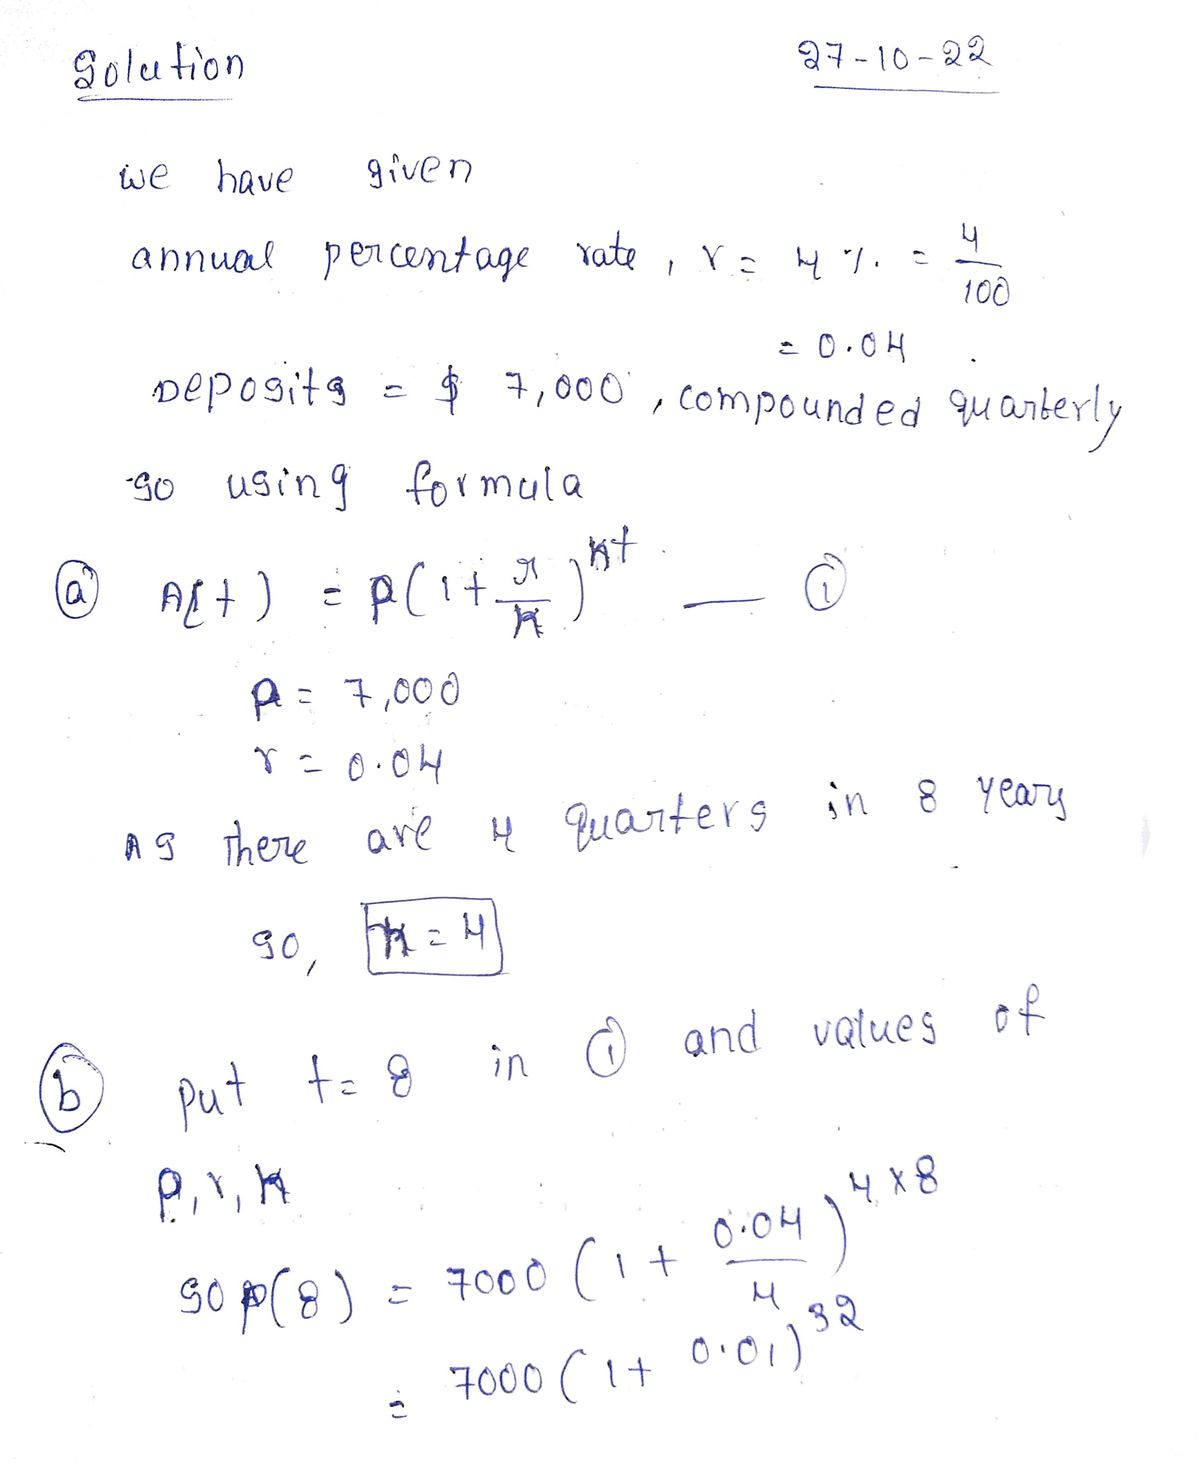 Solution 27-10-22
we have given
annual percentage rate, r = 4 %. = 4/100
= 0.04
Deposits = $ 7,000, compounded quarterly
so using formula
(a) A(t) = P(1 + r/k)^kt — (1)
P = 7,000
r = 0.04
As there are 4 quarters in 8 years
so, k = 4
(b) Put t = 8 in (1) and values of
P, r, k
so A(8) = 7000 (1 + 0.04/4)^4×8
= 7000 (1 + 0.01)^32